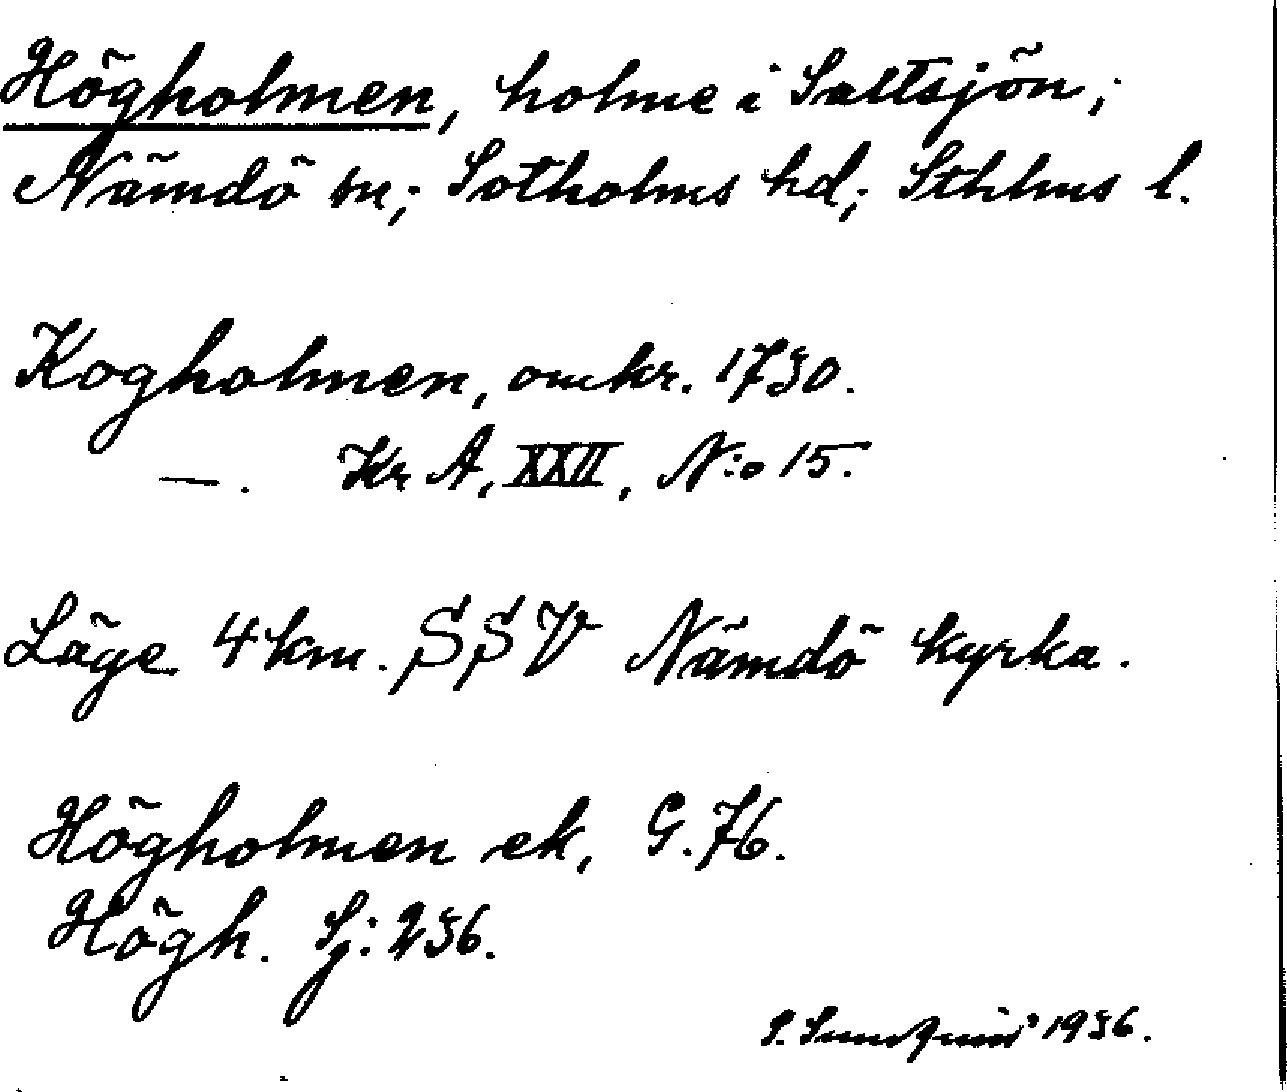 Högholmen, holme i Saltsjön;
Nämdö sn; Sotholms hd; Sthlms l.
Kogholmen, omkr. 1730.
—. Kr A, XXII, N:o 15.
Läge 4 km. SSV Nämdö kyrka.
Högholmen ek, G. 76.
Högh. Sj: 236.
S. Sundquist 1936.